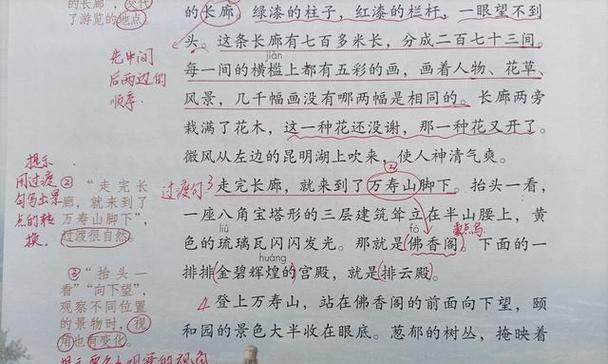 的长廊，
了游览的地点
先中间
后两边的
顺序.
提示
用过渡
句写出景
点的转
换.
②
“走完长
廊，就来到了
万寿山脚下”，
过渡很自然。
③
“抬头一
看”“向下望”，
观察不同位置
的景物时，视
角也有变化。
的长廊。绿漆的柱子，红漆的栏杆，一眼望不到
头。这条长廊有七百多米长，分成二百七十三间。
jiàn
每一间的横槛上都有五彩的画，画着人物、花草、
风景，几千幅画没有哪两幅是相同的。长廊两旁
栽满了花木，这一种花还没谢，那一种花又开了。
微风从左边的昆明湖上吹来，使人神清气爽。
过渡句 3 走完长廊，就来到了万寿山脚下。抬头一看，
②
一座八角宝塔形的三层建筑耸立在半山腰上，黄
liú fó
色的琉璃瓦闪闪发光。那就是佛香阁。下面的一
huáng
排排金碧辉煌的宫殿，就是排云殿。
4 登上万寿山，站在佛香阁的前面向下望，颐
和园的景色大半收在眼底。葱郁的树丛，掩映着